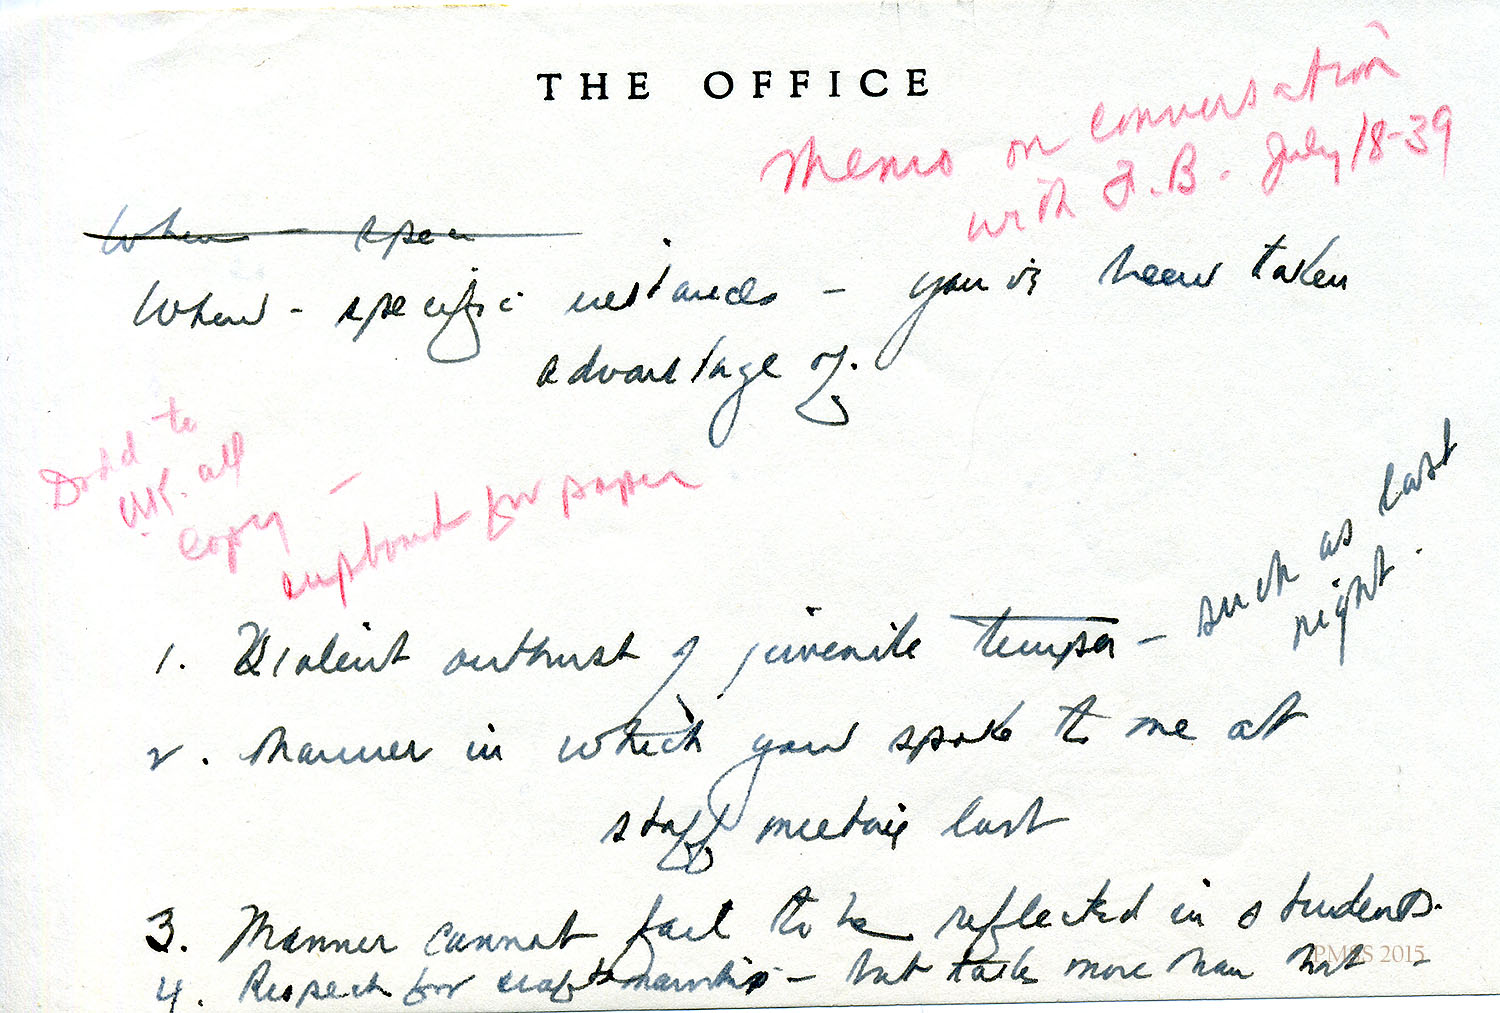 THE OFFICE
Memo on conversation
with F.B. July 18-39
When - spec
When - specific instances - you've been taken
advantage of.
Dodd to
all
copy -
cupboard for paper
1. Violent outburst of juvenile temper - such as last
night.
2. Manner in which you spoke to me at
staff meeting last
3. Manner cannot fail to be reflected in students.
4. Respect for craftsmanship - but takes more than that -
PMSS 2015